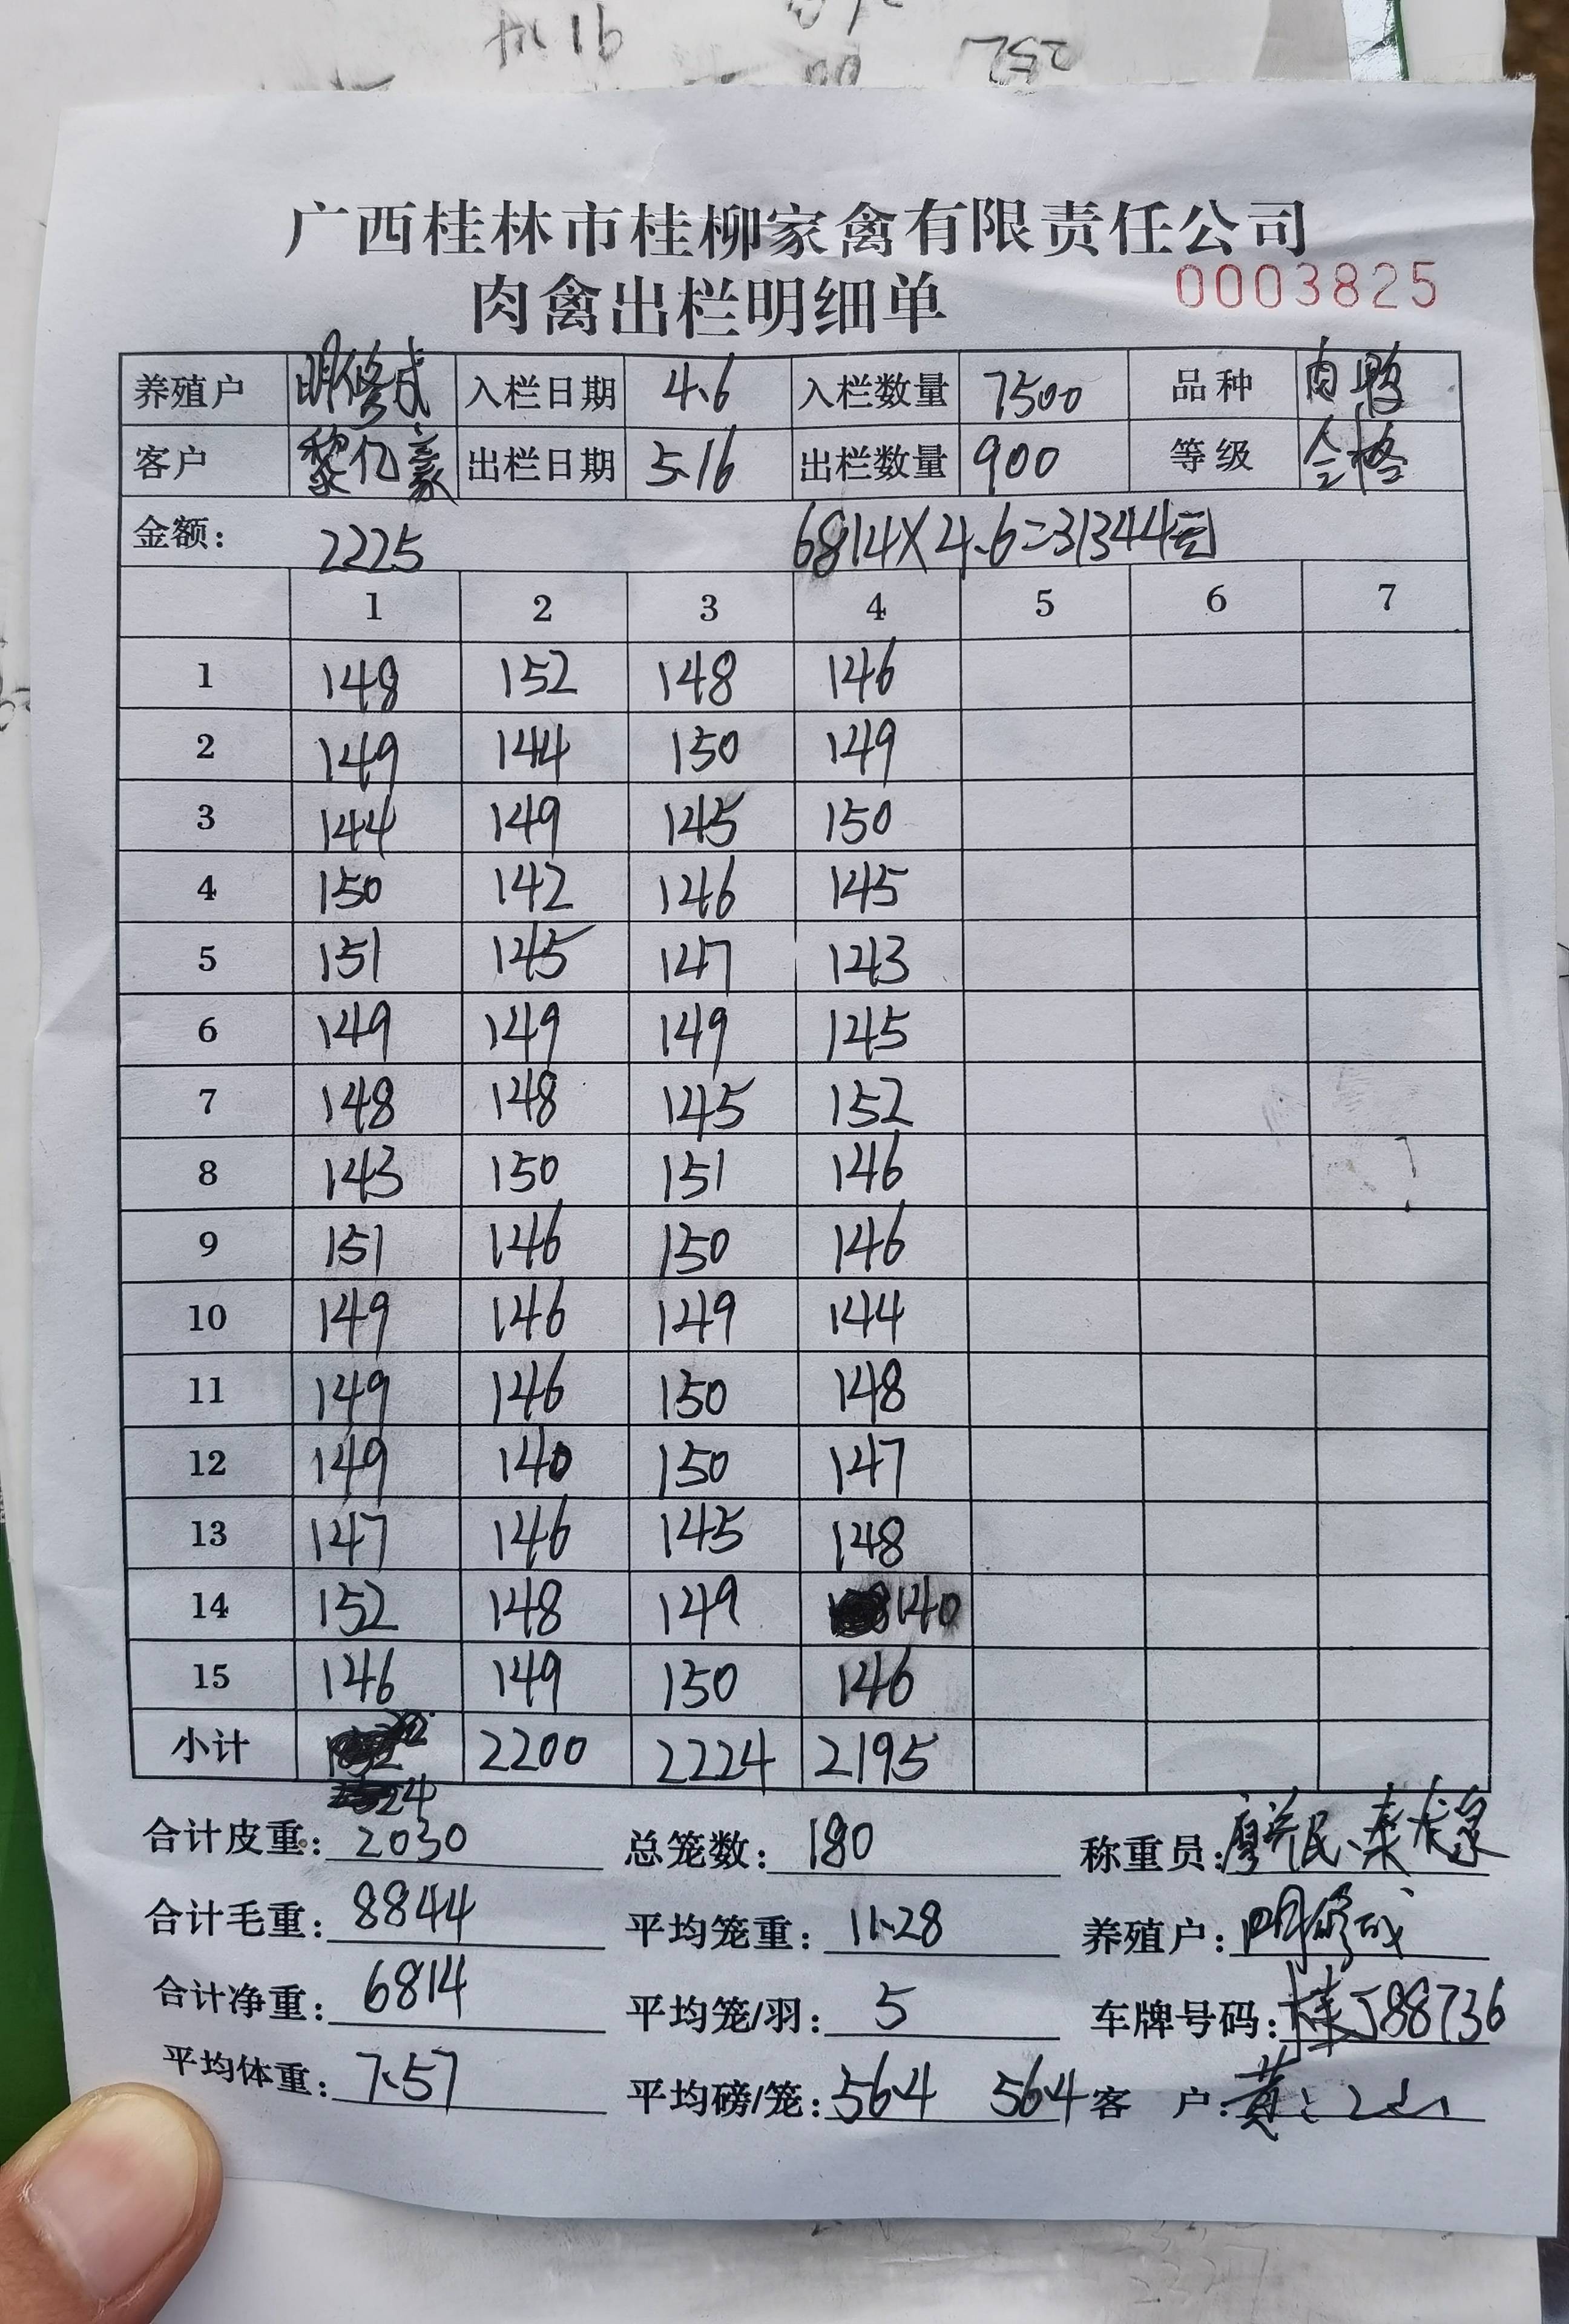 广西桂林市桂柳家禽有限责任公司
肉禽出栏明细单 0003825
养殖户 明修成 入栏日期 4.6 入栏数量 7500 品种 肉鸭
客户 黎亿豪 出栏日期 5.16 出栏数量 900 等级 合格
金额: 2225 6814×4.6=31344
1 2 3 4 5 6 7
1 148 152 148 146
2 149 144 150 149
3 144 149 145 150
4 150 142 146 145
5 151 145 147 143
6 149 149 149 145
7 148 148 145 152
8 143 150 151 146
9 151 146 150 146
10 149 146 149 144
11 149 146 150 148
12 149 140 150 147
13 147 146 145 148
14 152 148 149 140
15 146 149 150 146
小计 2200 2224 2195
合计皮重: 2030 总笼数: 180 称重员:
合计毛重: 8844 平均笼重: 11.28 养殖户: 明修成
合计净重: 6814 平均笼/羽: 5 车牌号码: 桂J88736
平均体重: 7.57 平均磅/笼: 56.4 56.4 客 户: 黄